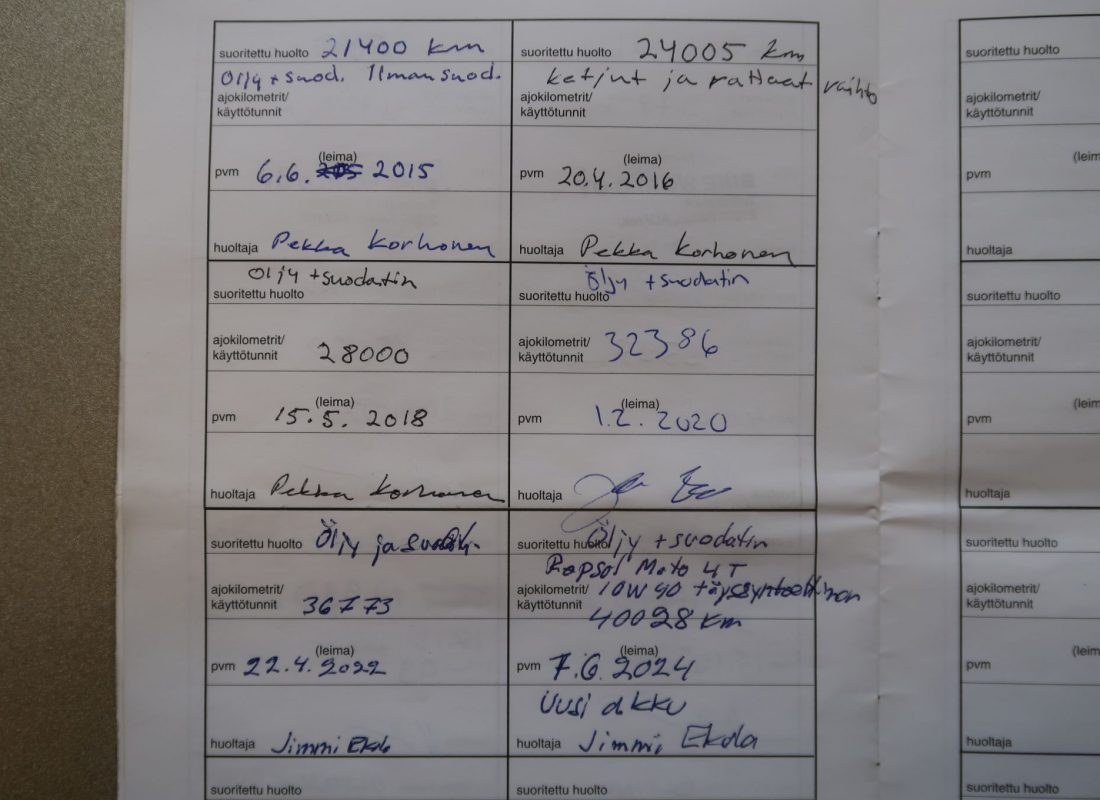 suoritettu huolto 21400 km
Öljy + suod. Ilmansuod.
ajokilometrit/
käyttötunnit
(leima)
pvm 6.6. 2015
huoltaja Pekka Korhonen
suoritettu huolto 24005 km
ketjut ja rattaat vaihto
ajokilometrit/
käyttötunnit
(leima)
pvm 20.4. 2016
huoltaja Pekka Korhonen
Öljy + suodatin
suoritettu huolto
ajokilometrit/
käyttötunnit 28000
(leima)
pvm 15.5. 2018
huoltaja Pekka Korhonen
Öljy + suodatin
suoritettu huolto
ajokilometrit/
käyttötunnit 32386
(leima)
pvm 1.2. 2020
huoltaja
suoritettu huolto Öljy ja
ajokilometrit/
käyttötunnit 36773
(leima)
pvm 22.4.2022
huoltaja Jimmi Ekola
suoritettu huolto Öljy + suodatin
Repsol Moto 4T
ajokilometrit/ 10W40
käyttötunnit 40028 km
(leima)
pvm 7.6.2024
Uusi akku
huoltaja Jimmi Ekola
suoritettu huolto
suoritettu huolto
suoritettu huolto
ajokilometrit/
käyttötunnit
pvm
huoltaja
suoritettu huolto
ajokilometrit/
käyttötunnit
pvm
huoltaja
suoritettu huolto
ajokilometrit/
käyttötunnit
pvm
huoltaja
suoritettu huolto